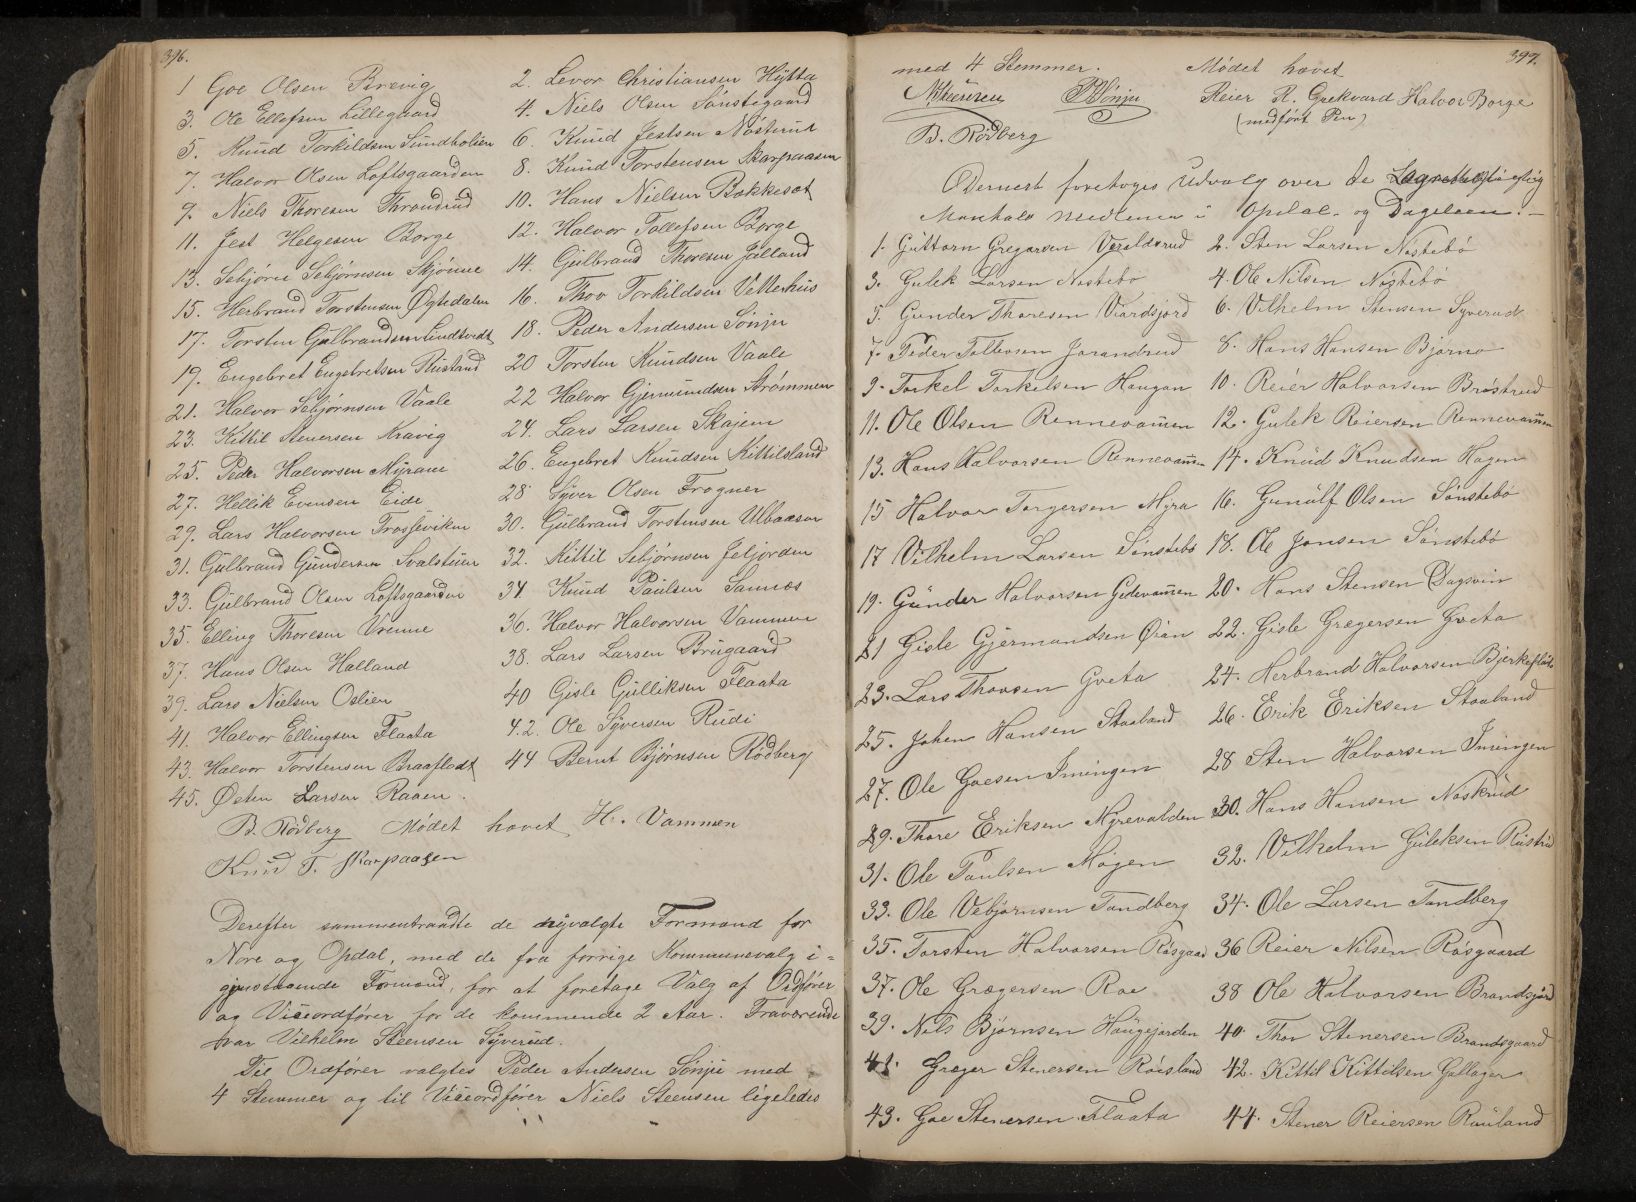 396.
1 Goe Olsen Brævig 2. Levor Christiansen Hÿtta
3. Ole Ellefsen Lillegaard 4. Niels Olsen Sønstegaard
5. Knud Torkildsen Sundbolien 6. Knud Jestsen Nøsterud
7. Halvor Olsen Loftsgaarden 8. Knud Torstensen Skarpaasen
9. Niels Thoresen Throndrud 10. Hans Nielsen Bakkeset
11. Jest Helgesen Borge 12. Halvor Tollefsen Borge
13. Sebjørn Sebjørnsen Skjønne 14. Gulbrand Thoresen Jalland
15. Herbrand Torstensen Øgtedalen 16. Thov Torkildsen Vetterhus
17. Torsten Gulbrandsen Lindtvedt 18. Peder Andersen Sønju
19. Engebret Engebretsen Rustand 20 Torsten Knudsen Vaale
21. Halvor Sebjørnsen Vaale 22 Halvor Gjermundsen Strømmen
23. Kittil Stenersen Kravig 24. Lars Larsen Skajem
25. Peder Halvorsen Myrane 26. Engebret Knudsen Kittilsland
27. Hellik Evensen Eide 28 Syver Olsen Frogner
29. Lars Halvorsen Frosseviken 30. Gulbrand Torstensen Ulbaasen
31. Gulbrand Gundersen Svalstuen 32. Kittil Sebjørnsen Jeljorden
33. Gulbrand Olsen Loftsgaarden 34 Knud Paulsen Sannes
35. Elling Thoresen Vrenne 36. Halvor Halvorsen Vammen
37. Hans Olsen Halland 38. Lars Larsen Brugaard
39. Lars Nielsen Oslien 40 Gisle Gulliksen Flaata
41. Halvor Ellingsen Flaata 42. Ole Syversen Rudi
43. Halvor Torstensen Braaflodt 44 Bernt Bjørnsen Rødberg
45. Østen Larsen Raaen.
B. Rødberg Mødet hævet H. Vammen
Knud T. Skarpaasen
Derefter sammentraadte de nyvalgte Formænd for
Nore og Opdal, med de fra forrige Kommunevalg i-
gjenstaaende Formænd, for at foretage Valg af Ordfører
og Viceordfører for de kommende 2 Aar. Fraværende
var Vilhelm Steensen Syverud.
Til Ordfører valgtes Peder Andersen Sønju med
4 Stemmer og til Viceordfører Niels Steensen ligeledes
397.
med 4 Stemmer. Mødet hævet
N Steensen P A Sønju Reier H. Grekvard Halvor Borge
(medført Pen)
B. Rødberg
Dernest foretoges Udvalg over de
Mantals medlemer i Opdal- og Dagalien.
1. Guttorm Gregarsen Veraldsrud 2. Sten Larsen Nøstebø
3. Gulek Larsen Nøstebø 4. Ole Nilsen Nøstebø
5. Gunder Thoresen Viardsjord 6. Vilhelm Stensen Syverud
7. Peder Tollevsen Jorandrud 8. Hans Hansen Bjørno
9. Torkel Torkelsen Haugan 10. Reier Halvorsen Brøstrud
11. Ole Olsen Rennevammen 12. Gulek Reiersen Rennevammen
13. Hans Halvorsen Rennevammen 14. Knud Knudsen Hagen
15 Halvor Torgersen Myra 16. Gunulf Olsen Sønstebø
17 Vilhelm Larsen Sønstebø 18. Ole Jonsen Sønstebø
19. Gunder Halvorsen Gedevammen 20. Hans Stensen Dagsvin
21 Gisle Gjermundsen Øian 22. Gisle Grægersen Gveta
23. Lars Thovsen Gveta 24. Herbrand Halvorsen Bjerkeflåt
25. Johen Hansen Staaland 26. Erik Eriksen Staaland
27. Ole Goesen Imingen 28 Sten Halvorsen Imingen
29. Thore Eriksen Myrevolden 30. Hans Hansen Nøskrud
31. Ole Paulsen Mogen 32. Vilhelm Guleksen Rustrud
33. Ole Vebjørnsen Tandberg 34. Ole Larsen Tandberg
35. Torsten Halvorsen Røsgaard 36 Reier Nilsen Røsgaard
37. Ole Grægersen Roe 38 Ole Halvorsen Brandsjord
39. Nils Bjørnsen Haugejorden 40. Thov Stenersen Brandsgaard
41. Græger Stenersen Roisland 42. Kittil Kittilsen Gallager
43. Goe Stenersen Flaata 44. Stener Reiersen Rauland